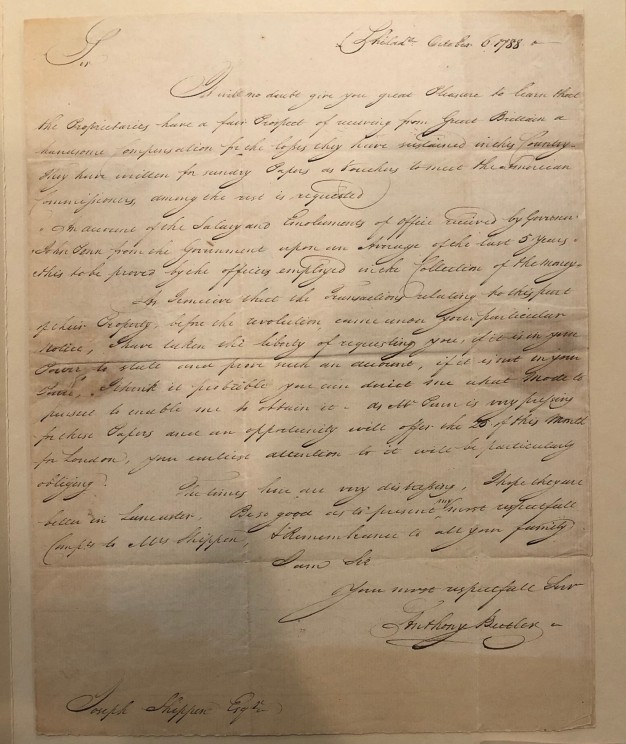 Philada. October 6. 1788
Sir
It will no doubt give you great Pleasure to learn that
the Proprietaries have a fair Prospect of receiving from Great Brittain a
handsome Compensation for the losses they have sustained in this Country.
they have written for sundry Papers as Vouchers to meet the American
Commissioners, among the rest is requested
An account of the Salary and Emoluments of office received by Governor
John Penn from the Government upon an Average of the last 5 Years.
this to be proved by the officers employed in the Collection of the Money.
As I conceive that the Transactions relating to this part
of their Property, before the revolution came under your particular
Notice, I have taken the liberty of requesting you, if it is in your
Power to state and prove such an account, if it is not in your
Power, I think it probable you can direct me what Mode to
pursue to enable me to obtain it - as Mr. Penn is very pressing
for these Papers and an opportunity will offer the 25 of this Month
for London, your earliest attention to it will be particularly
obliging.
The times here are very distressing, I hope they are
better in Lancaster. Be so good as to present my most respectfull
Compts. to Mrs Shippen, & Remembrance to all your family
I am Sir
Your most respectfull Serv
Anthony Butler
Joseph Shippen Esqr.